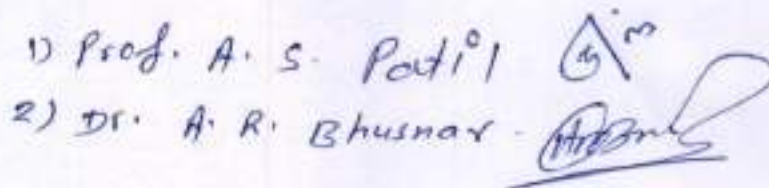 1) Prof. A. S. Patil
2) Dr. A. R. Bhusnar